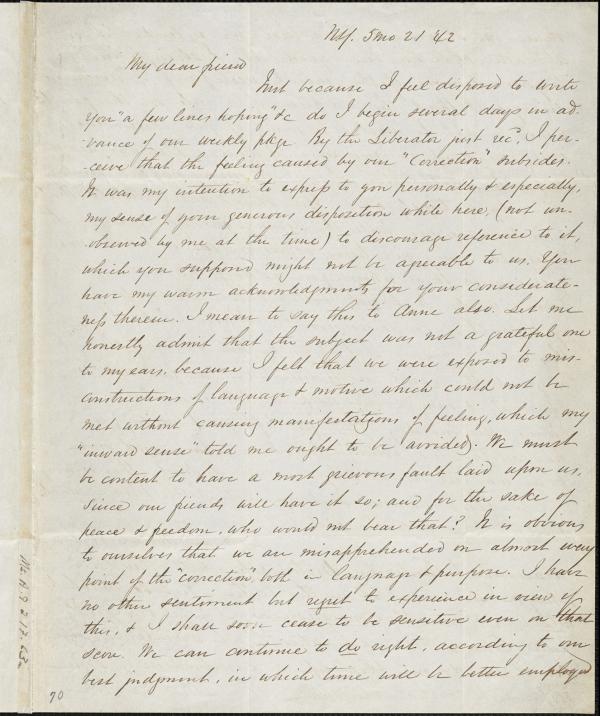 NY. 5mo 21 '42
My dear friend
Just because I feel disposed to write
you "a few lines hoping" &c do I begin several days in ad-
-vance of our weekly pkge. By the Liberator just recd, I per-
-ceive that the feeling caused by our "Correction" subsides.
It was my intention to express to you personally & especially,
my sense of your generous disposition while here, (not un-
-observed by me at the time) to discourage reference to it,
which you supposed might not be agreeable to us. You
have my warm acknowledgments for your considerate-
ness therein. I mean to say this to Anne also. Let me
honestly admit that the subject was not a grateful one
to my ears, because I felt that we were exposed to mis-
constructions of language & motive which could not be
met without causing manifestations of feeling, which my
"inward sense" told me ought to be avoided). We must
be content to have a most grievous fault laid upon us,
since our friends will have it so; and for the sake of
peace & freedom, who would not bear that? It is obvious
to ourselves that we are misapprehended on almost every
point of the "correction", both in language & purpose. I have
no other sentiment but regret to experience in view of
this, & I shall soon cease to be sensitive even on that
score. We can continue to do right, according to our
best judgment, in which time will be better employed
70